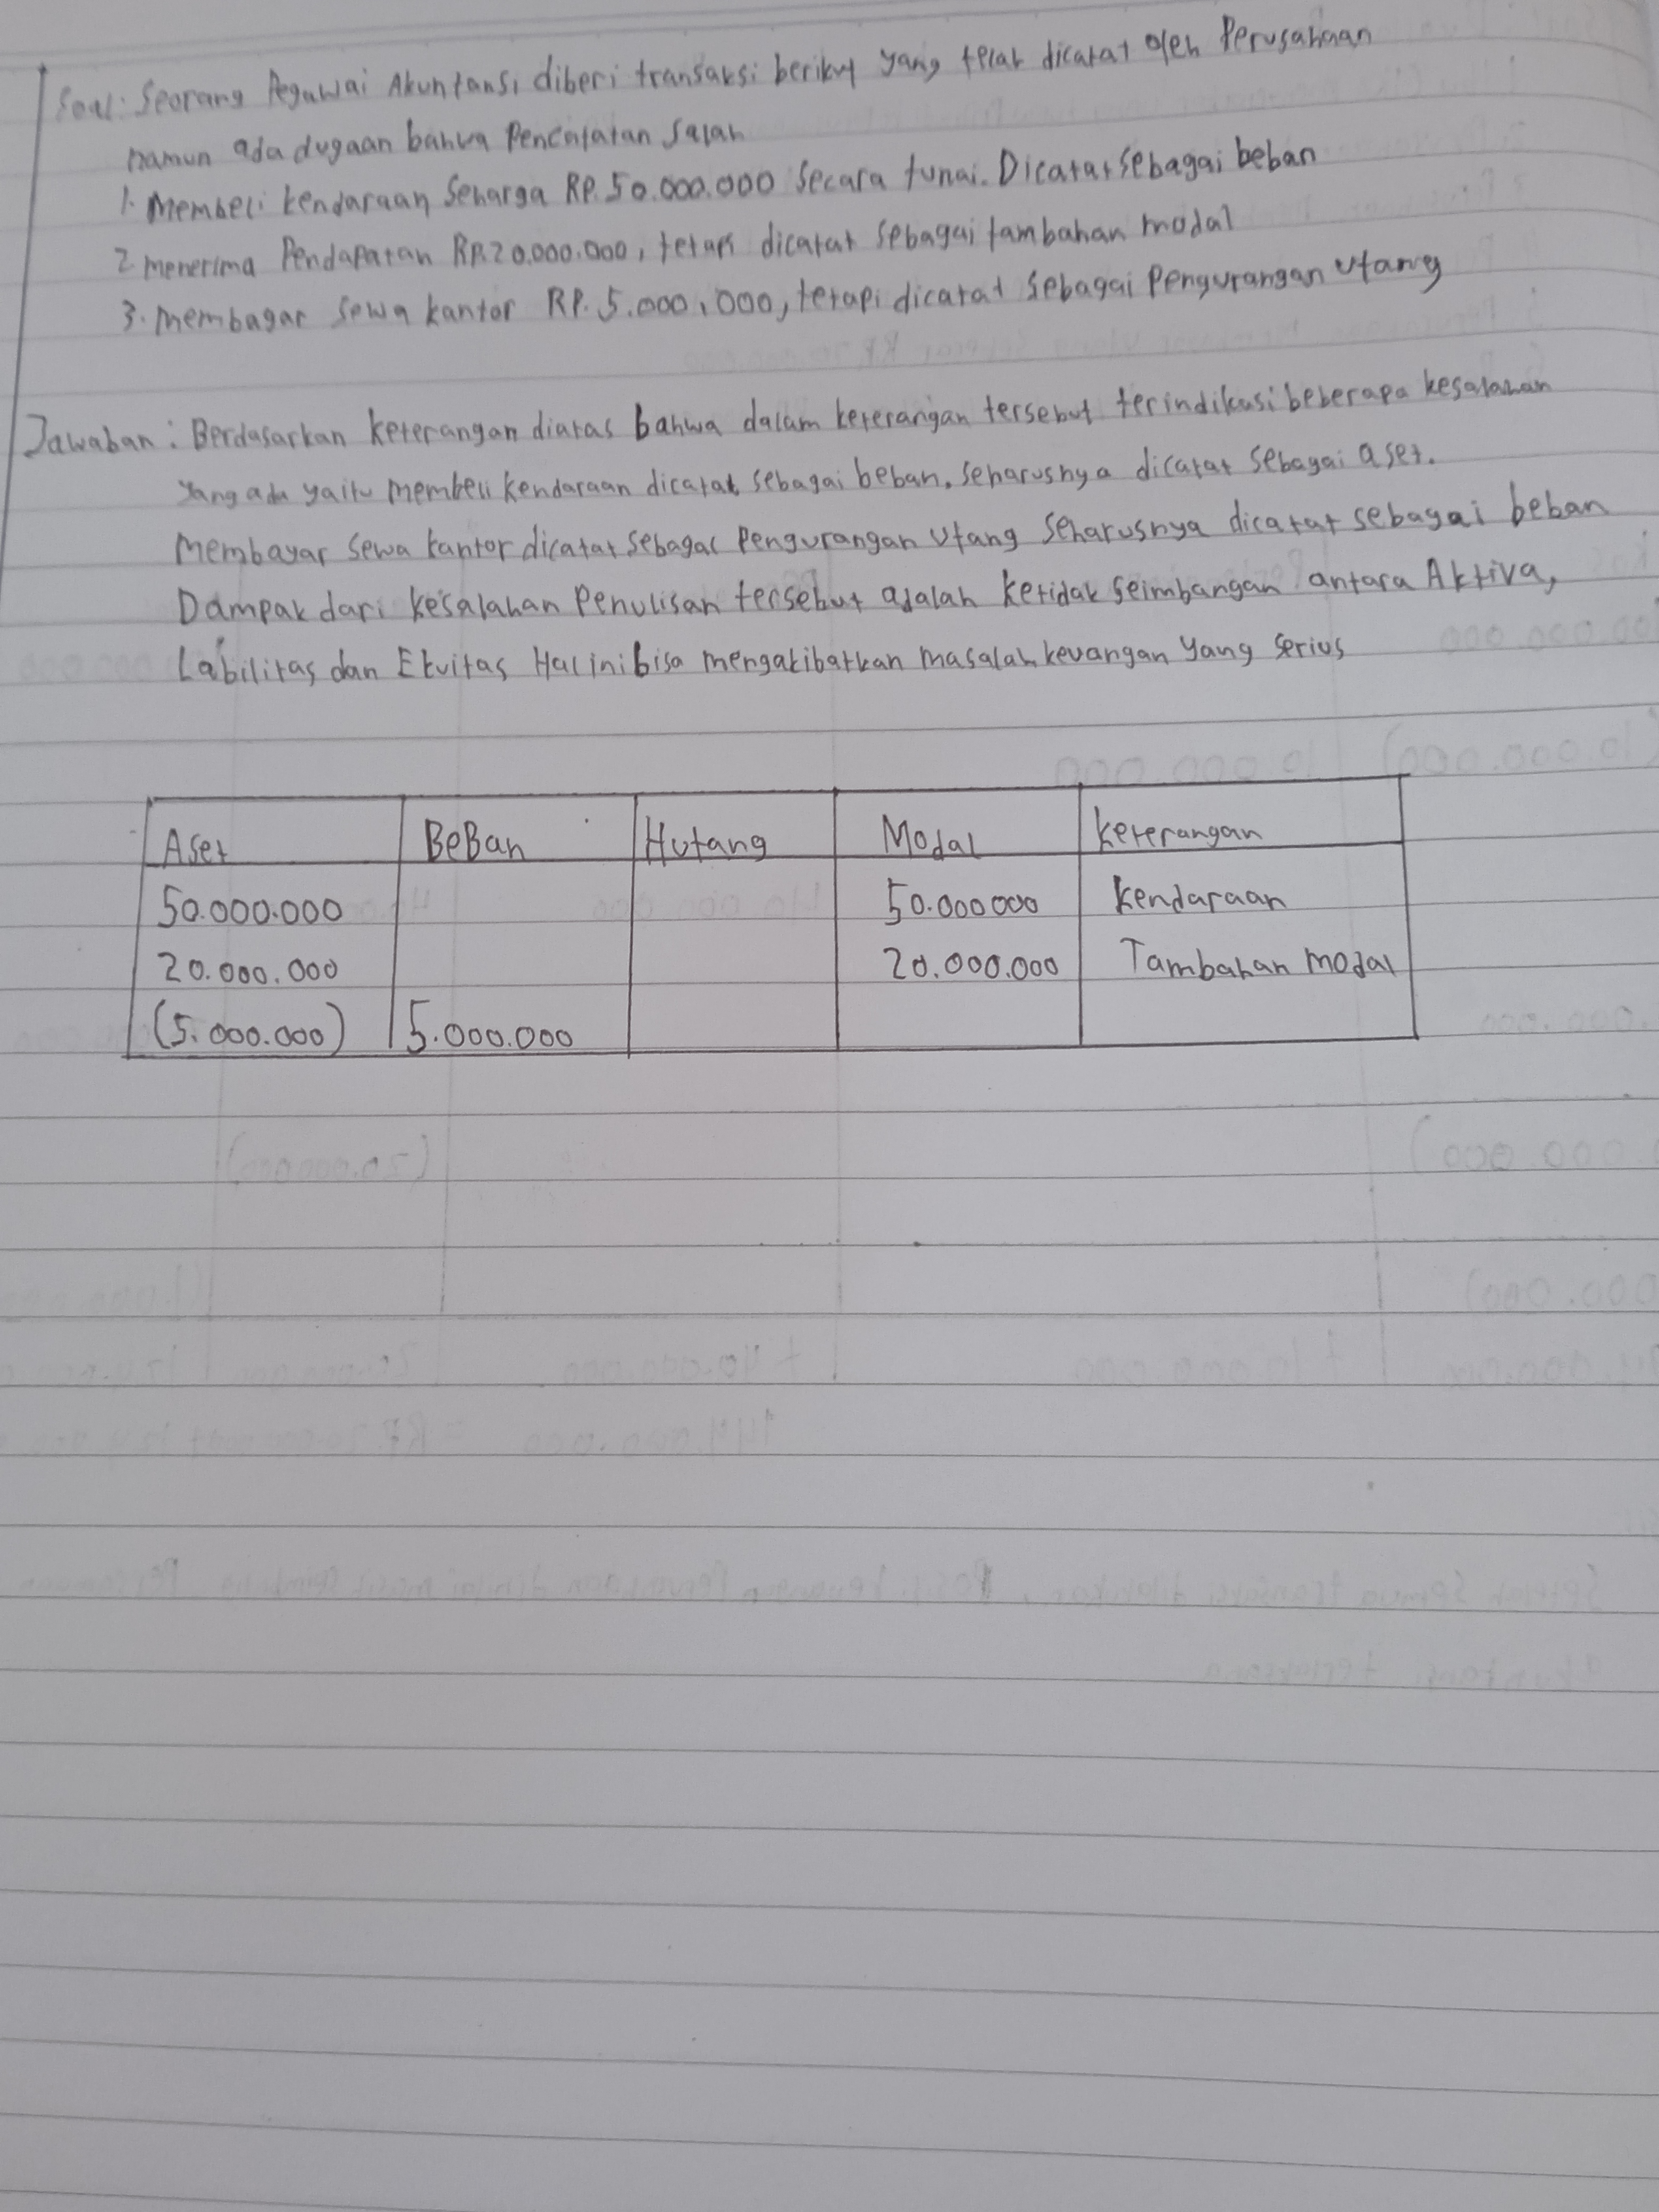 Soal: Seorang Pegawai Akuntansi diberi transaksi berikut yang telah dicatat oleh Perusahaan
namun ada dugaan bahwa Pencatatan Salah
1. Membeli kendaraan Seharga RP.50.000.000 Secara tunai. Dicatat sebagai beban
2. menerima Pendapatan RP.20.000.000, tetapi dicatat sebagai tambahan modal
3. membayar sewa kantor RP. 5.000.000, tetapi dicatat sebagai Pengurangan utang
Jawaban : Berdasarkan keterangan diatas bahwa dalam keterangan tersebut terindikasi beberapa kesalahan
yang ada yaitu membeli kendaraan dicatat sebagai beban, seharusnya dicatat sebagai aset.
Membayar sewa kantor dicatat sebagai Pengurangan utang Seharusnya dicatat sebagai beban
Dampak dari kesalahan Penulisan tersebut adalah ketidak seimbangan antara Aktiva,
Labilitas dan Ekuitas Hal ini bisa mengakibatkan masalah keuangan yang serius
Aset BeBan Hutang Modal keterangan
50.000.000 50.000000 kendaraan
20.000.000 20.000.000 Tambahan modal
(5.000.000) 5.000.000